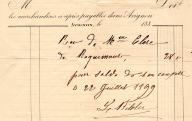 M Doit
les marchandises ci-après payables dans Avignon
Avignon, le 188
Reçu de Mme Clerc
de Roquemaure 28
pour solde de son compte
à 22 Juillet 1899